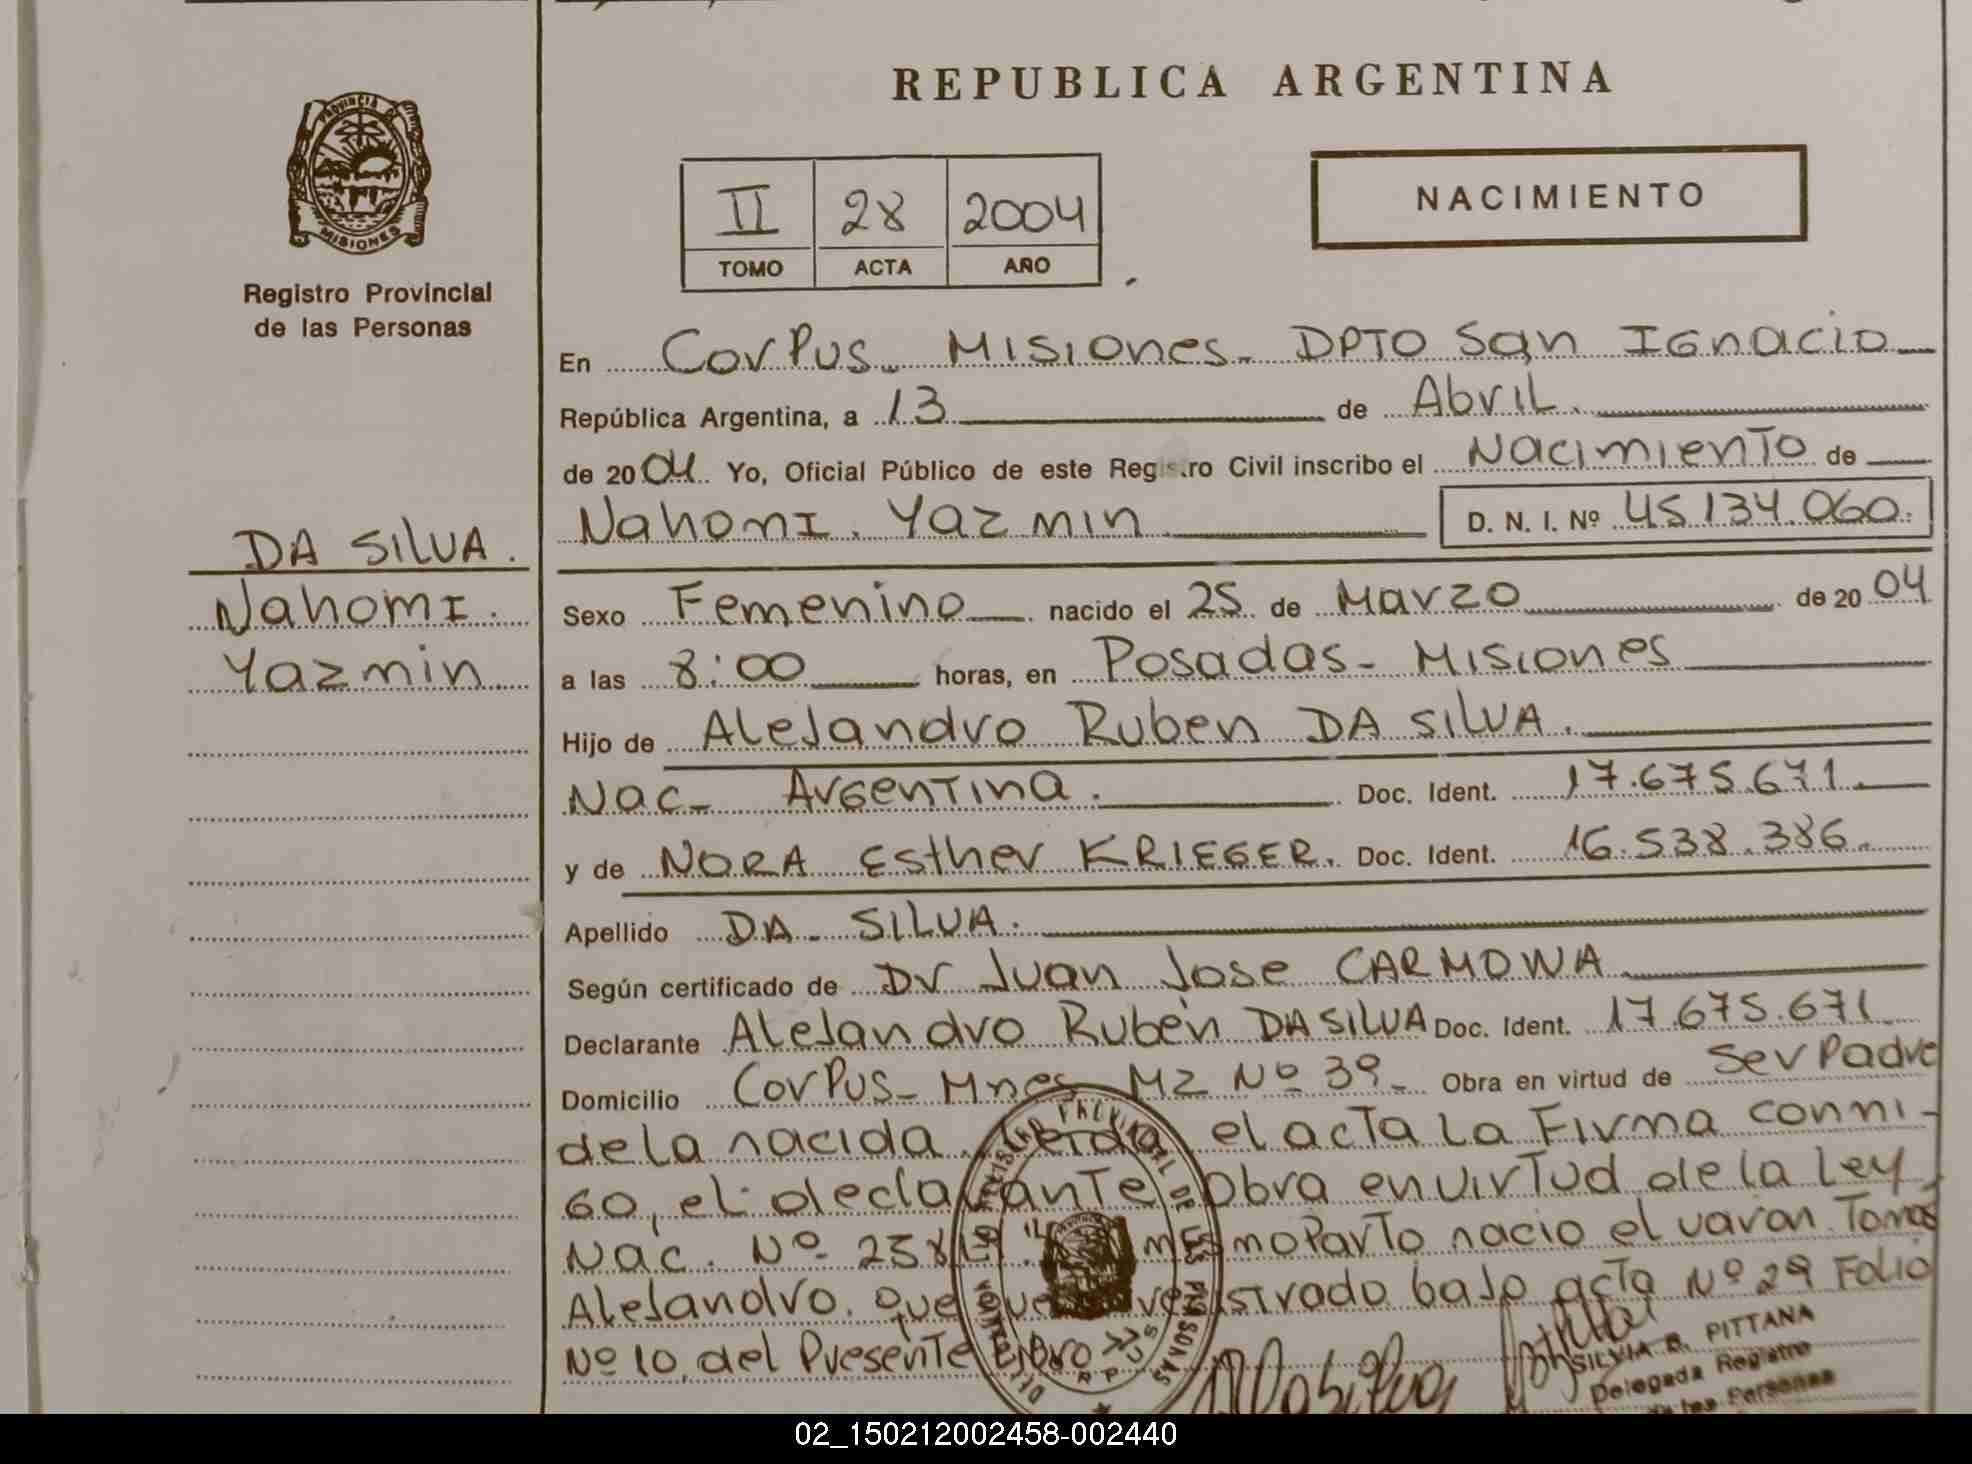 REPUBLICA ARGENTINA
PROVINCIA DE
MISIONES
Registro Provincial
de las Personas
II 28 2004
TOMO ACTA AÑO
NACIMIENTO
En Corpus - Misiones - DPTO San Ignacio
República Argentina, a 13 de Abril.
de 2004. Yo, Oficial Público de este Registro Civil inscribo el Nacimiento de
Nahomi. Yazmin D. N. I. Nº 45.134.060.
DA SILVA.
Nahomi.
Yazmin
Sexo Femenino nacido el 25 de Marzo de 2004
a las 8:00 horas, en Posadas - Misiones
Hijo de Alejandro Ruben DA SILVA.
Nac - Argentina. Doc. Ident. 17.675.671.
y de NORA Esther KRIEGER. Doc. Ident. 16.538.386.
Apellido DA SILVA.
Según certificado de Dr Juan Jose CARMONA
Declarante Alejandro Rubén DA SILVA Doc. Ident. 17.675.671
Domicilio Corpus - Mnes Mz Nº 39 - Obra en virtud de Ser Padre
de la nacida. Leida el acta La Firma conmi-
go, el declarante Obra en virtud de la Ley
Nac. Nº mismo Parto nacio el varon Tomas
Alejandro. que registrado bajo acta Nº 29 Folio
Nº 10, del Presente Libro
SILVIA B. PITTANA
Delegada Registro
de las Personas
02_150212002458-002440